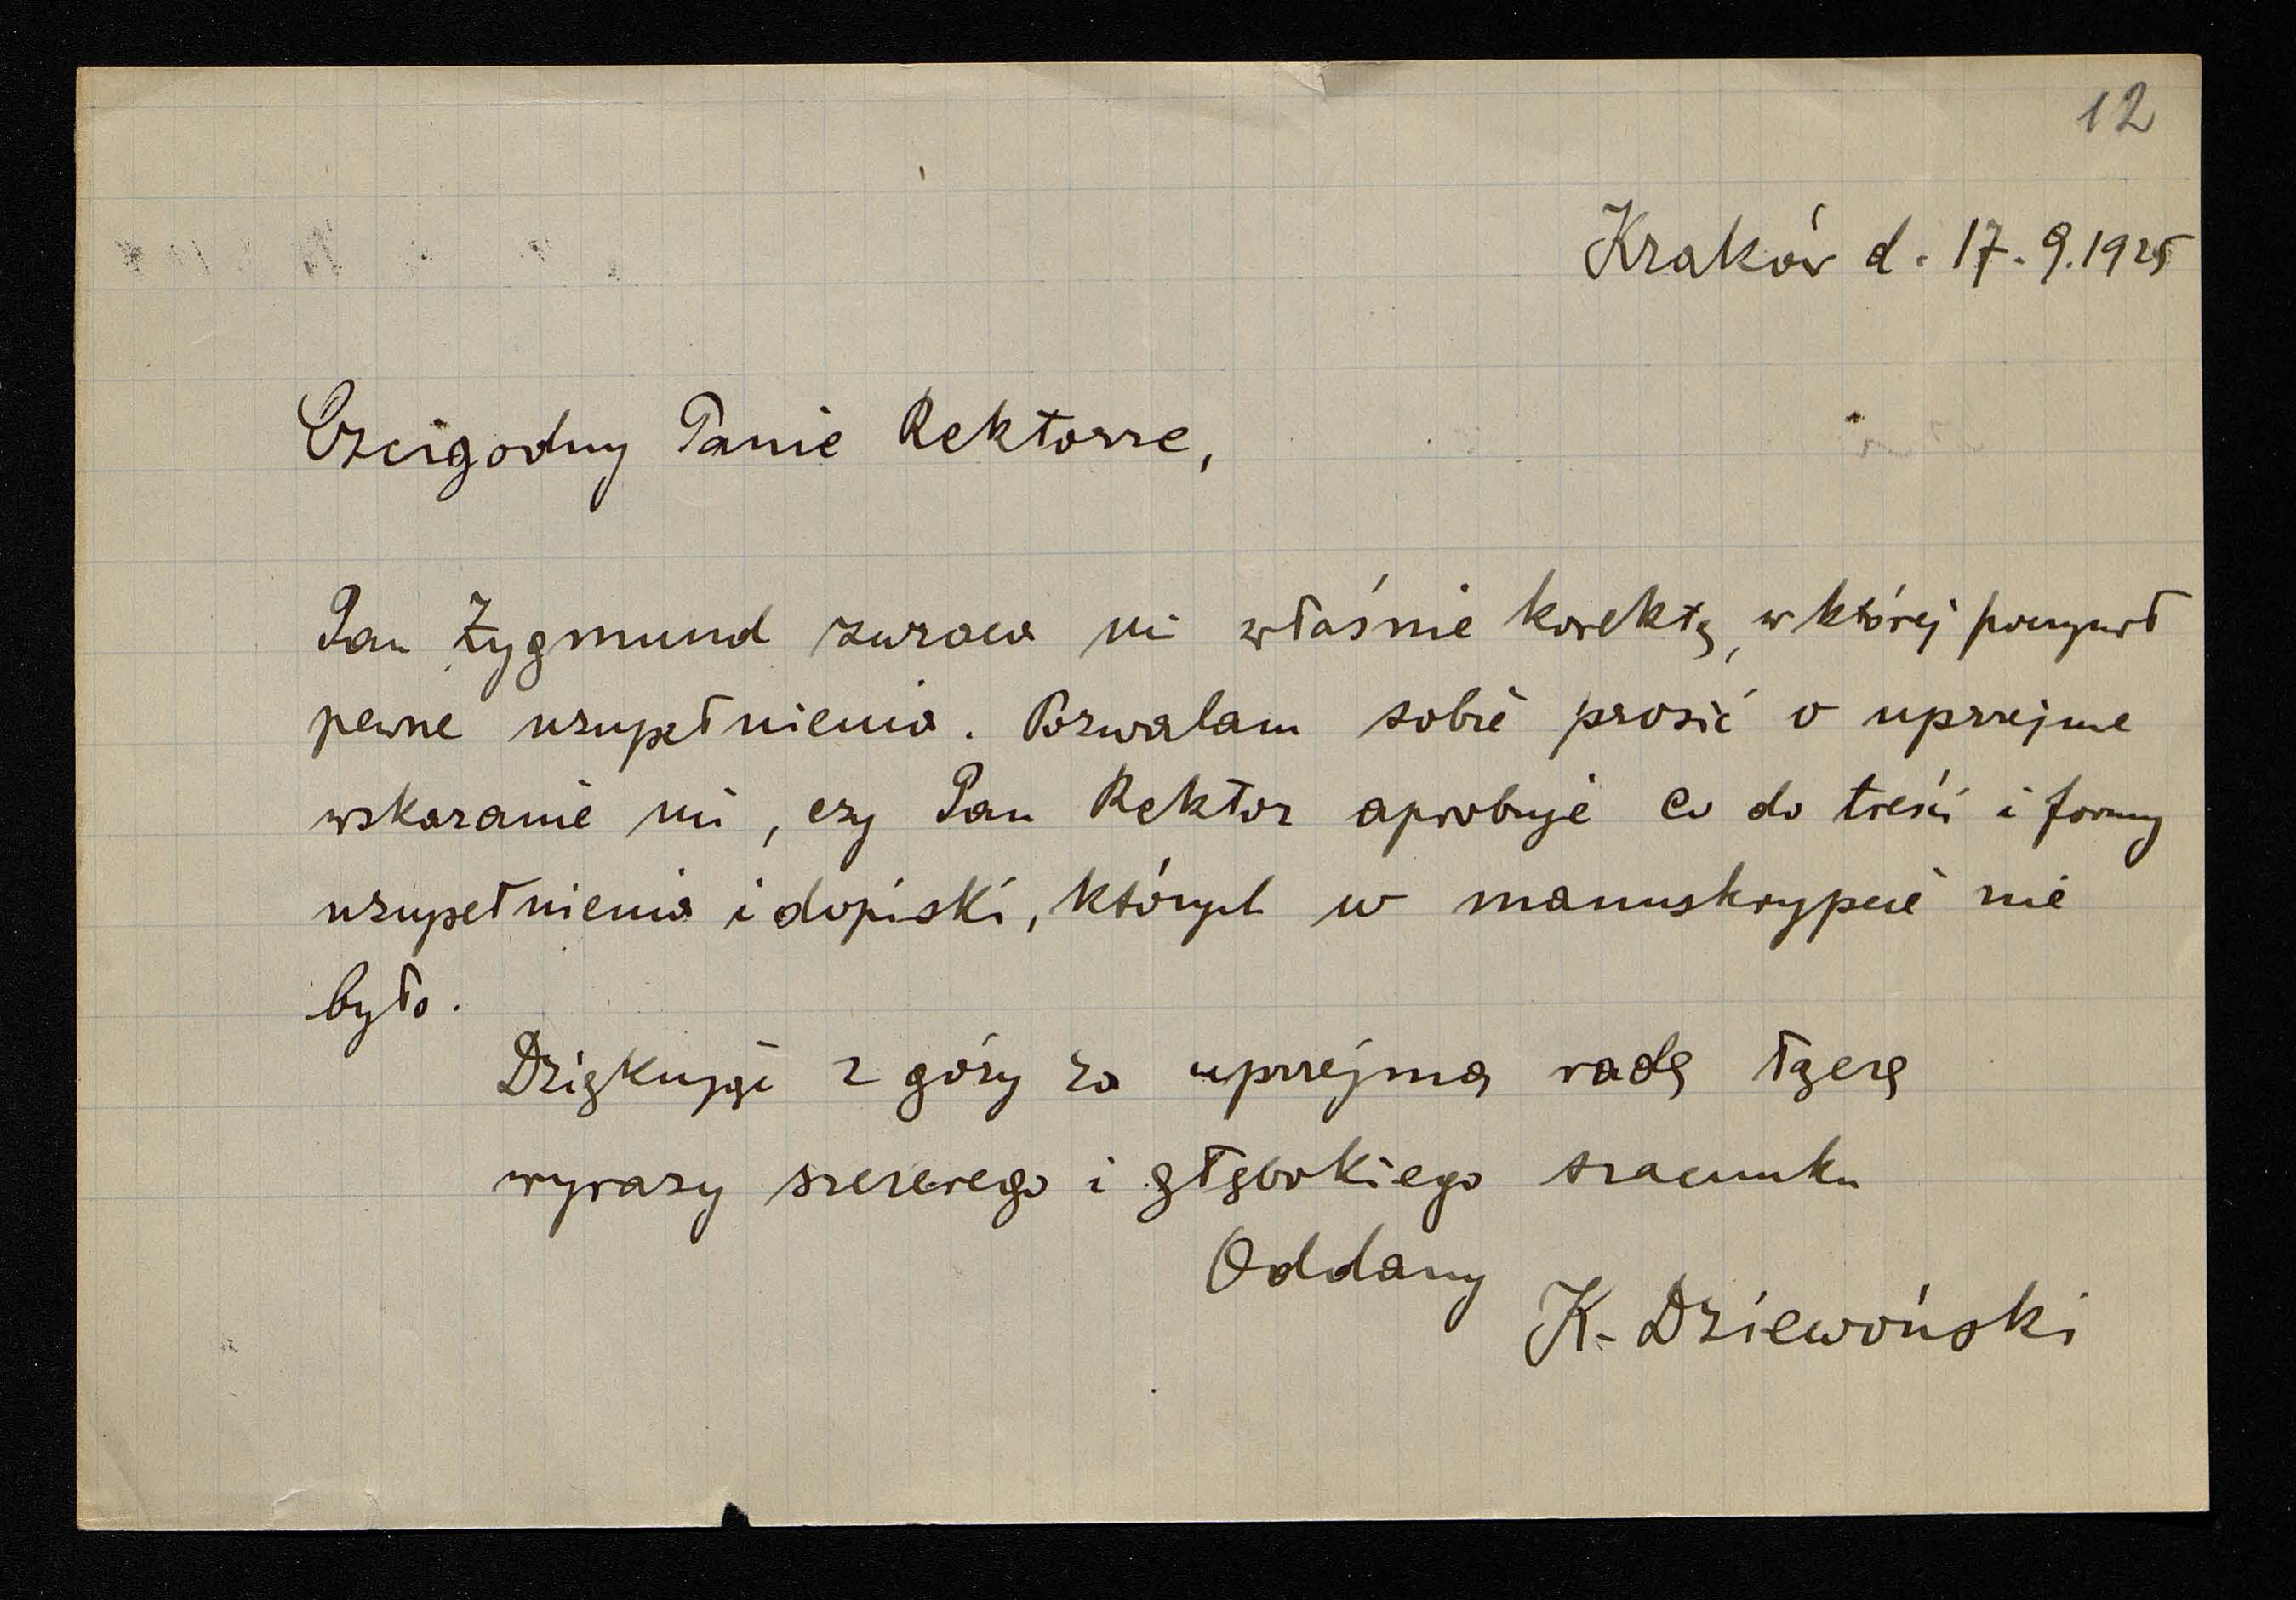 12
Kraków d. 17. 9. 1925
Czcigodny Panie Rektorze,
Pan Zygmund zwraca mi właśnie korektę, w której poczynił
pewne uzupełnienia. Pozwalam sobie prosić o uprzejme
wskazanie mi, czy Pan Rektor aprobuje co do treści i formy
uzupełnienia i dopiski, których w manuskrypcie nie
było.
Dziękując z góry za uprzejmą radę łączę
wyrazy szczerego i głębokiego szacunku
Oddany
K. Dziewoński